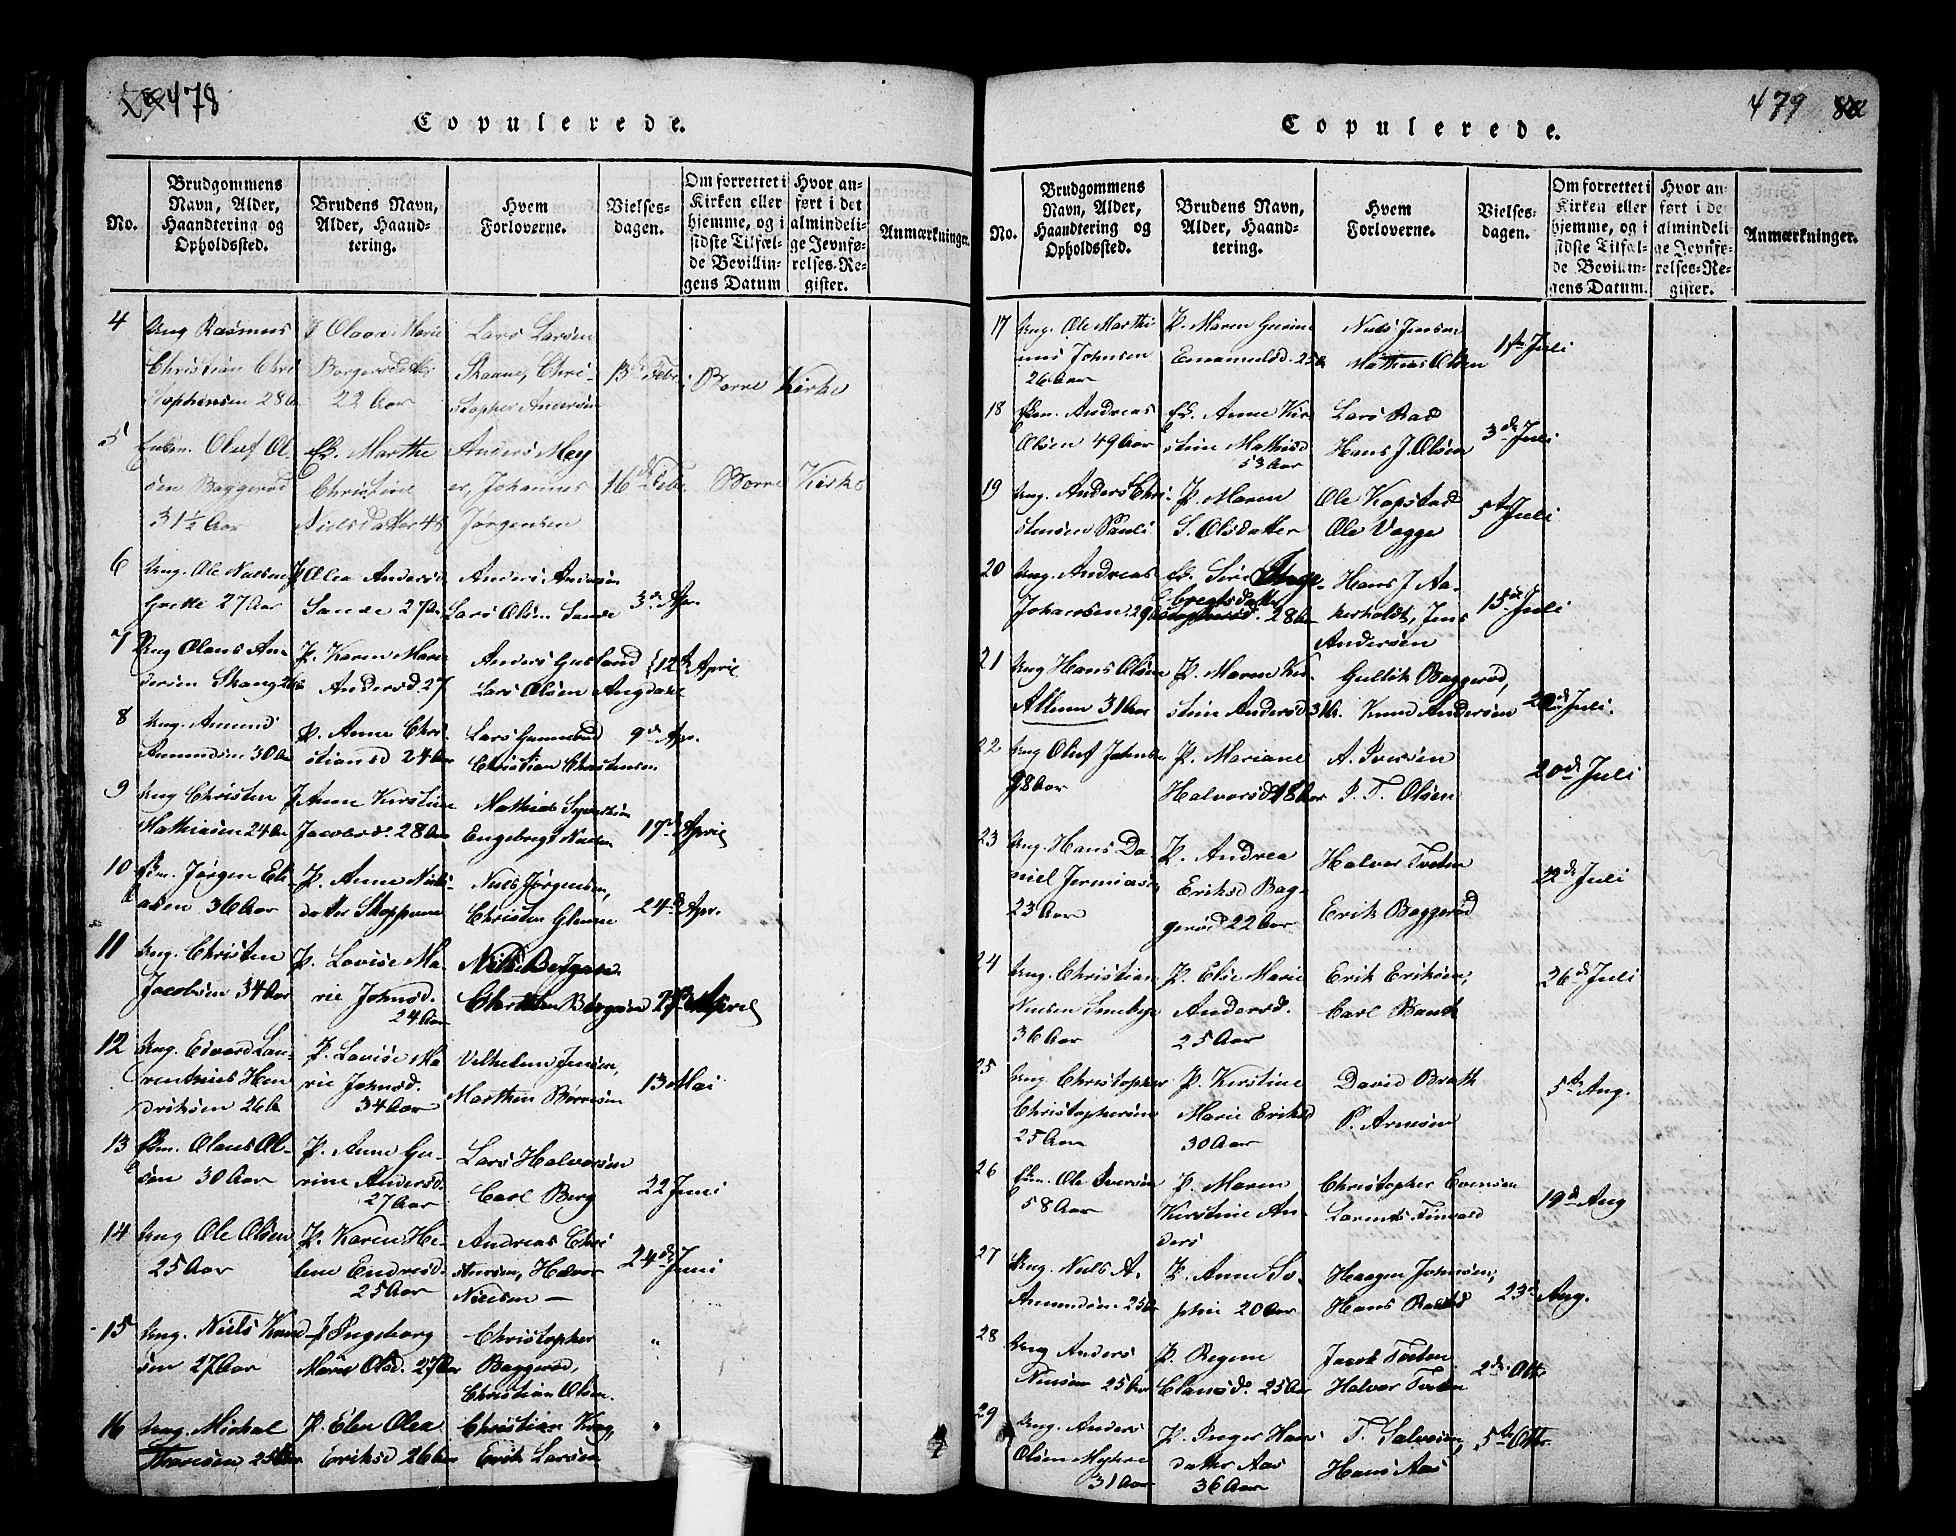 478
Copulerede.
No.
Brudgommens Navn, Alder, Haandtering og Opholdssted.
Brudens Navn, Alder, Haandtering.
Hvem Forloverne.
Vielsesdagen.
Om forrettet i Kirken eller hjemme, og i sidste Tilfælde Bevillingens Datum
Hvor anført i det almindelige Jevnførelses-Register.
Anmærkninger.
4
Ung Rasmus
Christian Chri
stophersen 28
Marie
Borgersdatter
22 Aar
Lars Larsen
Skaane, Chri-
stopher Andersen
13 Febr.
Borre Kirke
5
Enkem. Oluf Ol
sen Baggerød
31½ Aar
E. Marthe
Christine
Nielsdatter 45
Anders Mey
er, Johannes
Jørgensen
16de Febr.
Borre Kirke
6
Ung. Ole Nielsen
27 Aar
Olea Andersd
Sande 27
Anders Andersen
Lars Olsen Sande
3de Apr.
7
Ung Olaus An
dersen Skang
P. Karen Marie
Andersd. 27
Anders Gusland
Lars Olsen Angdahl
12te April
8
Ung. Amund
Amundsen 30
P. Anne Chri-
stiansd 24
Lars
Christian Christensen
9de Apr.
9
Ung Christen
Mathiasen 24
P Anne Kirstine
Jacobsd. 28
Mathias
Engebregt Nielsen
17de April
10
Jørgen Eli-
asen 36 Aar
P. Anne Niels-
datter Skoppum
Niels Jørgensen,
Christen
24de Apr.
11
Ung. Christen
Jacobsen 34 Aar
P. Lovise Ma-
rie Johnsd.
24 Aar
Christian April
12
Ung. Edvard Lau-
rentsius Hen
driksen 26
P. Lovise Ma
rie Johnsd.
34 Aar
Vilhelm Jensen,
Marthin Børresen
13 Mai
13
Em. Olaus Ol-
sen 30 Aar
P. Anne Gu-
rine Andersd.
27 Aar
Lars Halvorsen
Carl Berg
22 Juni
14
Ung Ole Olsen
25 Aar
P. Karen He-
lene Endresd.
25 Aar
Andreas Chri
stensen, Halvor
Nielsen —
24de Juni
15
Ung. Niels Knud
sen 27 Aar
P Ingeborg
Marie Olsd. 27
Christopher
Baggerød,
Christian Olsen.
"
16
Ung. Michal
Thoresen 25
P. Elen Olea
Eriksd 26
Christian Krog,
Erik Larsen
"
479
Copulerede.
No.
Brudgommens Navn, Alder, Haandtering og Opholdssted.
Brudens Navn, Alder, Haandtering.
Hvem Forloverne.
Vielsesdagen.
Om forrettet i Kirken eller hjemme, og i sidste Tilfælde Bevillingens Datum.
Hvor anført i det almindelige Jevnførelses-Register.
Anmærkninger.
17
Ung. Ole Marthi
nus Johnsen
26 Aar
P. Maren Gurine
Emanuelsd. 25
Niels Jensen
Mathias Olsen
1ste Juli
18
Em. Andreas
Olsen 49 Aar
E. Anne Kir
stine Mathisd
53 Aar
Lars Rød
Hans J. Olsen
3de Juli
19
Ung. Anders Chri-
stensen Pauli
P. Maren
S. Olsdatter
Ole Kopstad
Ole Vegge
5te Juli
20
Ung. Andreas
Johansen 29
E. Siri Inge-
bregtsdatter
28
Hans J. Aa-
kerholdt, Jens
Andersen
15de Juli
21
Ung Hans Olsen
Allum 31 Aar
P. Maren Kir-
stine Andersd 31
Gullik Baggerød,
Knud Andersen
20de Juli.
22
Ung Oluf Johns
28 Aar
P. Mariane
Halvorsd 18 Aar
A. Iversen
P. T. Olsen
20de Juli
23
Ung. Hans Da-
niel Jeremias
23 Aar
P. Andrea
Eriksd Bag-
gerød 22 Aar
Halvor Tveten
Erik Baggerød
22de Juli
24
Ung. Christian
Nielsen Smebye
36 Aar
P. Else Marie
Andersd.
25 Aar
Erik Eriksen,
Carl Bank
26de Juli
25
Ung. Christopher
Christophersen
25 Aar
P. Kirstine
Marie Eriksd
30 Aar
David Brath
P. Arnesen
5te Aug.
26
Em. Ole Iversen
58 Aar
P. Maren
Kirstine An-
ders
Christopher Evensen
Lorents Tinvald
19de Aug
27
Ung. Niels A.
Amundsen 25
P. Anne So-
phie 20 Aar
Haagen Johnsen,
Hans
23de Aug.
28
Ung Anders
Nielsen 25 Aar
P. Regine
Clausd. 25 Aar
Jacob Tveten
Halvor Tveten
2de Octbr
29
Ung. Anders
Olsen Myhre
31 Aar
P. Inger Hans
datter Aas
36 Aar
T. Salvesen,
Hans Aas
5te Octbr.